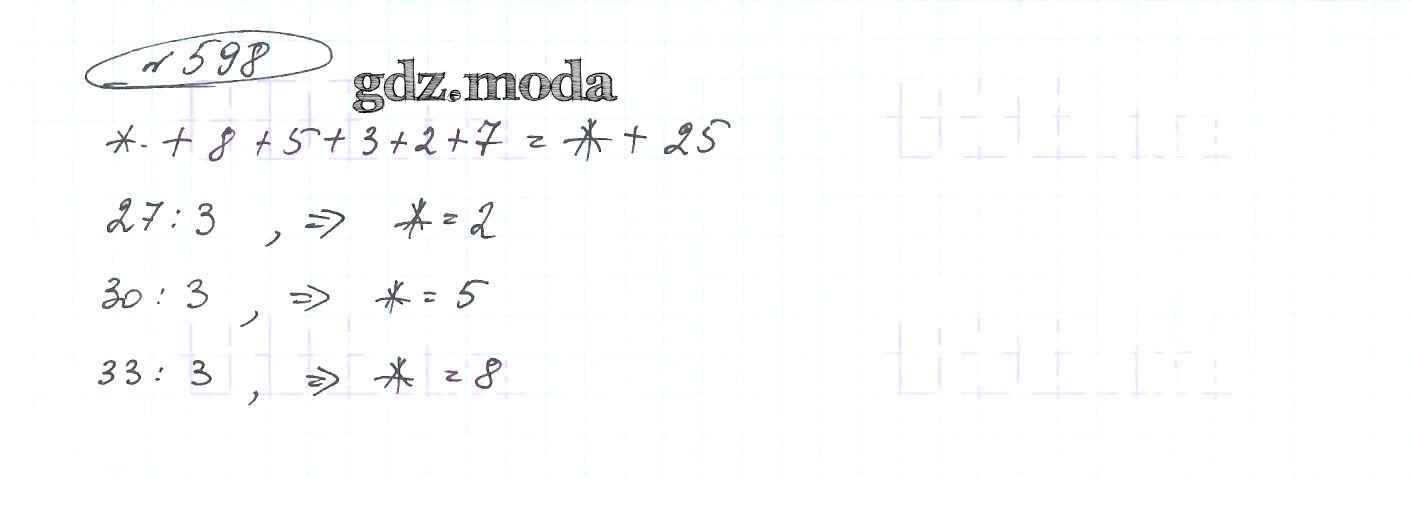 № 598
gdz.moda
* + 8 + 5 + 3 + 2 + 7 = * + 25
27 : 3 , => * = 2
30 : 3 , => * = 5
33 : 3 , => * = 8